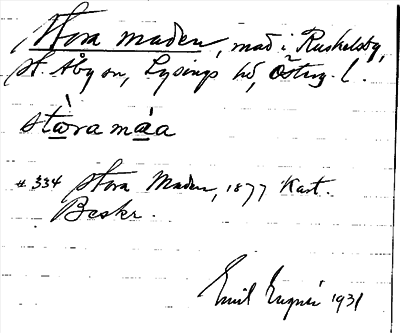 Stora maden, mad i Ruskelsby,
St. Åby sn, Lysings hd, Östrg. l.
stòramàa
# 334 Stora Maden, 1877 Kart.
Beskr.
Emil 1931